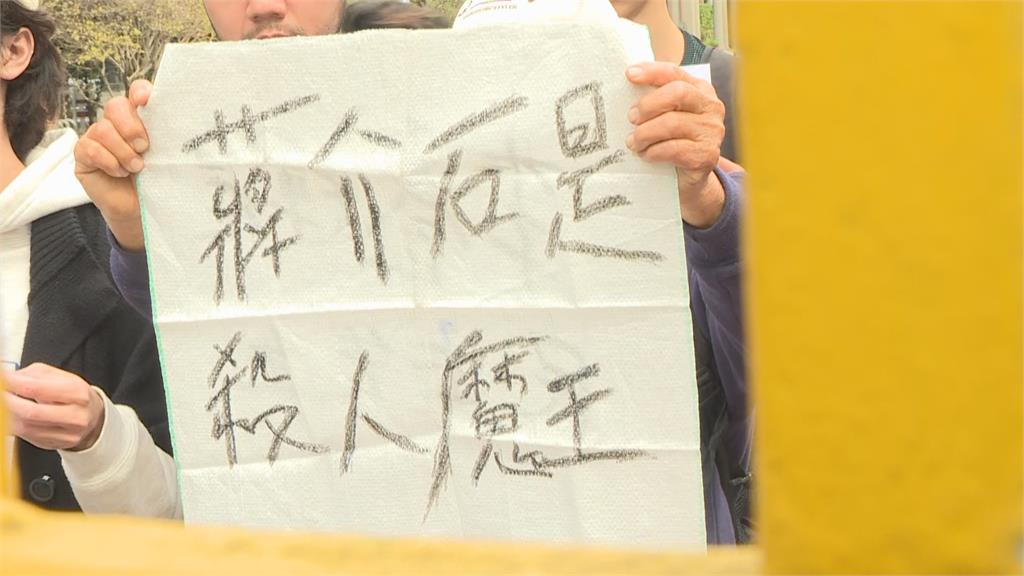 蔣介石是
殺人魔王